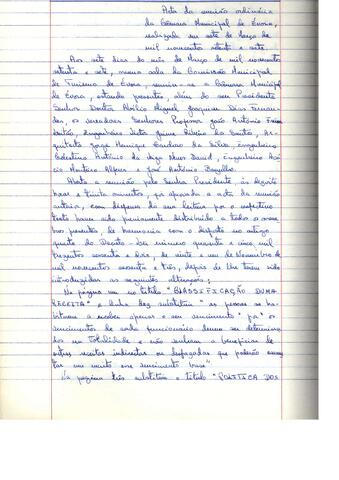 Acta da reunião ordinária
da Câmara Municipal de Évora,
realizada em sete de Março de
mil novecentos setenta e sete.
Aos sete dias do mês de Março de mil novecentos
setenta e sete, numa sala da Comissão Municipal
de Turismo de Évora, reuniu-se a Câmara Municipal
de Évora, estando presentes além do seu Presidente
Senhor Doutor Abílio Miguel Joaquim Dias Fernan-
des, os vereadores Senhores Professor João António
Engenheiro Jaime Ribeiro dos Santos, Ar-
quitecto Jorge Henrique Cardoso da Silva, Engenheiro
Celestino António da David, Engenheiro
Monteiro e José António
Aberta a reunião pelo Senhor Presidente às dezoito
horas e trinta minutos, foi aprovada a acta da reunião
anterior, com dispensa da sua leitura por o respectivo
texto haver sido previamente distribuído a todos os mem-
bros presentes, de harmonia com o disposto no artigo
quarto do Decreto-Lei número quarenta e cinco mil
trezentos sessenta e dois, de vinte e um de Novembro de
mil novecentos sessenta e três, depois de lhe terem sido
introduzidas as seguintes alterações:
Na página um no título "CLASSIFICAÇÃO DUMA
RECEITA" a linha dez substituir "as pessoas se ha-
bituem a receber apenas o seu vencimento" por "os
vencimentos de cada funcionário devem ser determina-
dos na totalidade e não venham a beneficiar de
outras receitas indirectas ou que poderão
tar em muito esse vencimento base"
Na página três substituir o título "POLÍTICA DOS